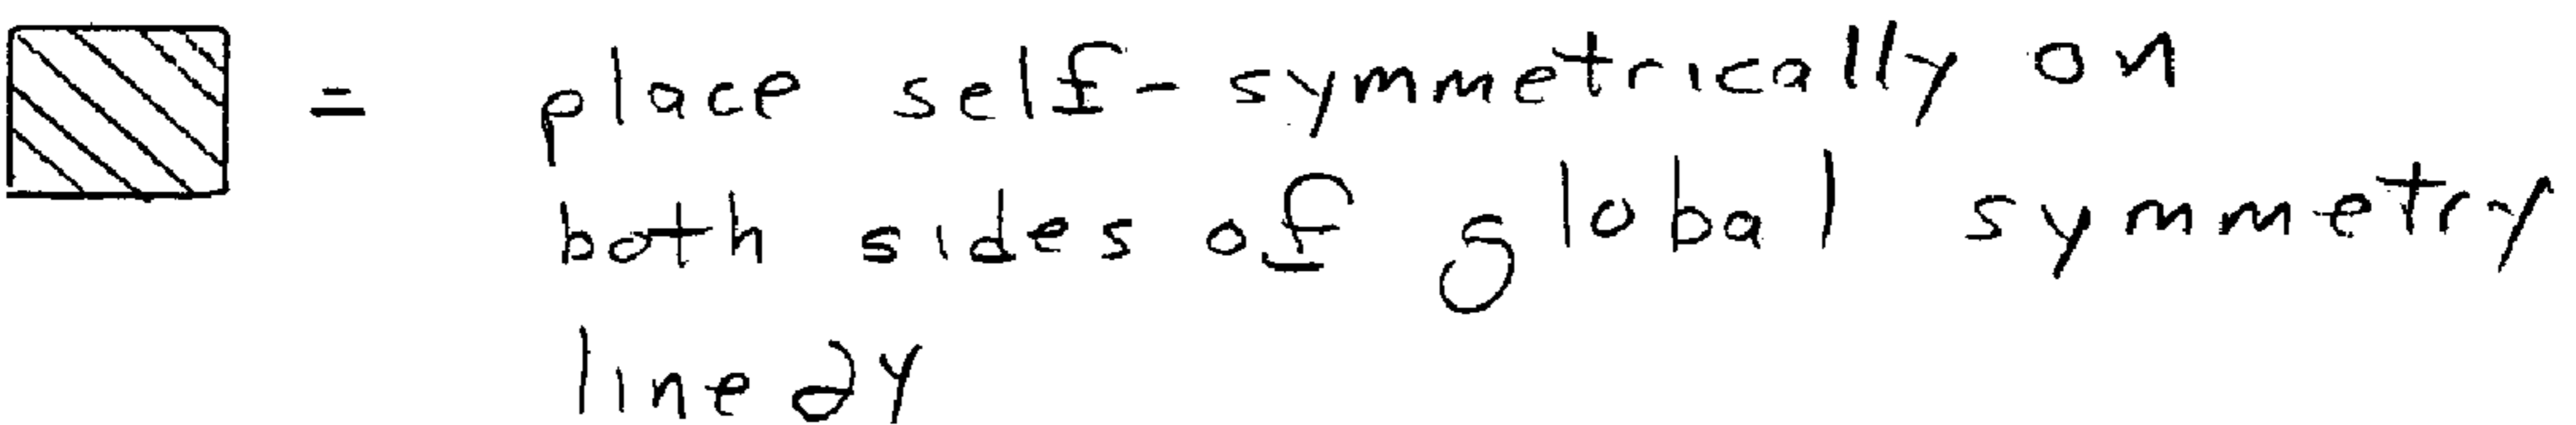 = place self-symmetrically on
both sides of global symmetry
line 24